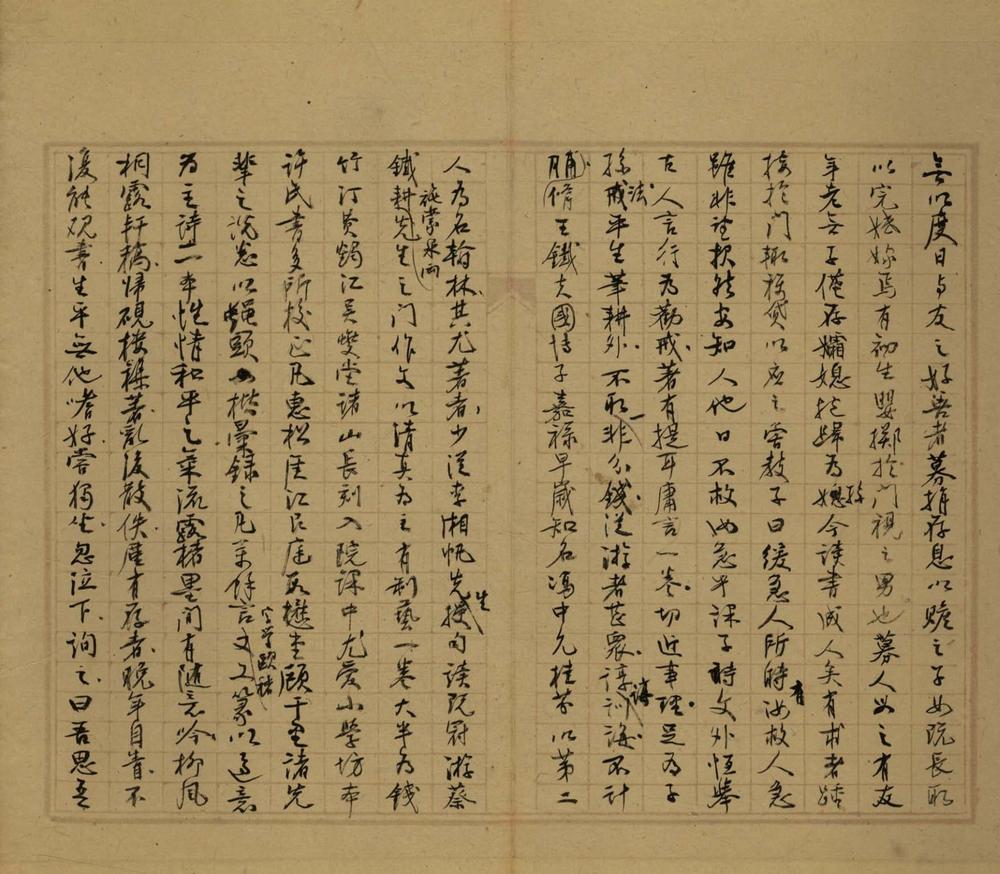 無以度日与友之好善者募捐存息以贍之子女既長取
以完婚嫁焉有初生嬰擲於門視之男也募人乳之有友
年老無子僅存孀媳抱歸為媳孫今讀書成人矣有求者踵
接於門輒移貸以應之嘗教子曰緩急人所時有汝救人急
雖非望報然安知人他日不救汝急乎課子時文外恒舉
古人言行為勸戒著有提耳庸言一卷切近事理足為子
孫法戒平生筆耕外不取一非分錢從游者甚衆諄諄訓誨不計
脯脩王鐵夫國博子嘉祿早歲知名馮中允桂芬以第二
人為名翰林其尤著者少從李湘帆先生授句讀既冠游蔡
鐵耕施棠泉兩先生之門作文以清真為主有制藝一卷大半為錢
竹汀黃蠲江吳燮堂諸山長刻入院課中尤愛小學坊本
許氏書多所校正凡惠松厓江艮庭段懋堂顧千里諸先
輩之說悉以蠅頭小楷彙錄之凡業餘言文工篆以適意
字學歐褚
為主詩一本性情和平之氣流露楮墨間有隨意吟柳風
桐露軒稿歸硯樓襍著亂後散佚廑有存者晚年自責不
復能硯書生平無他嗜好嘗獨坐忽泣下詢之曰吾思吾